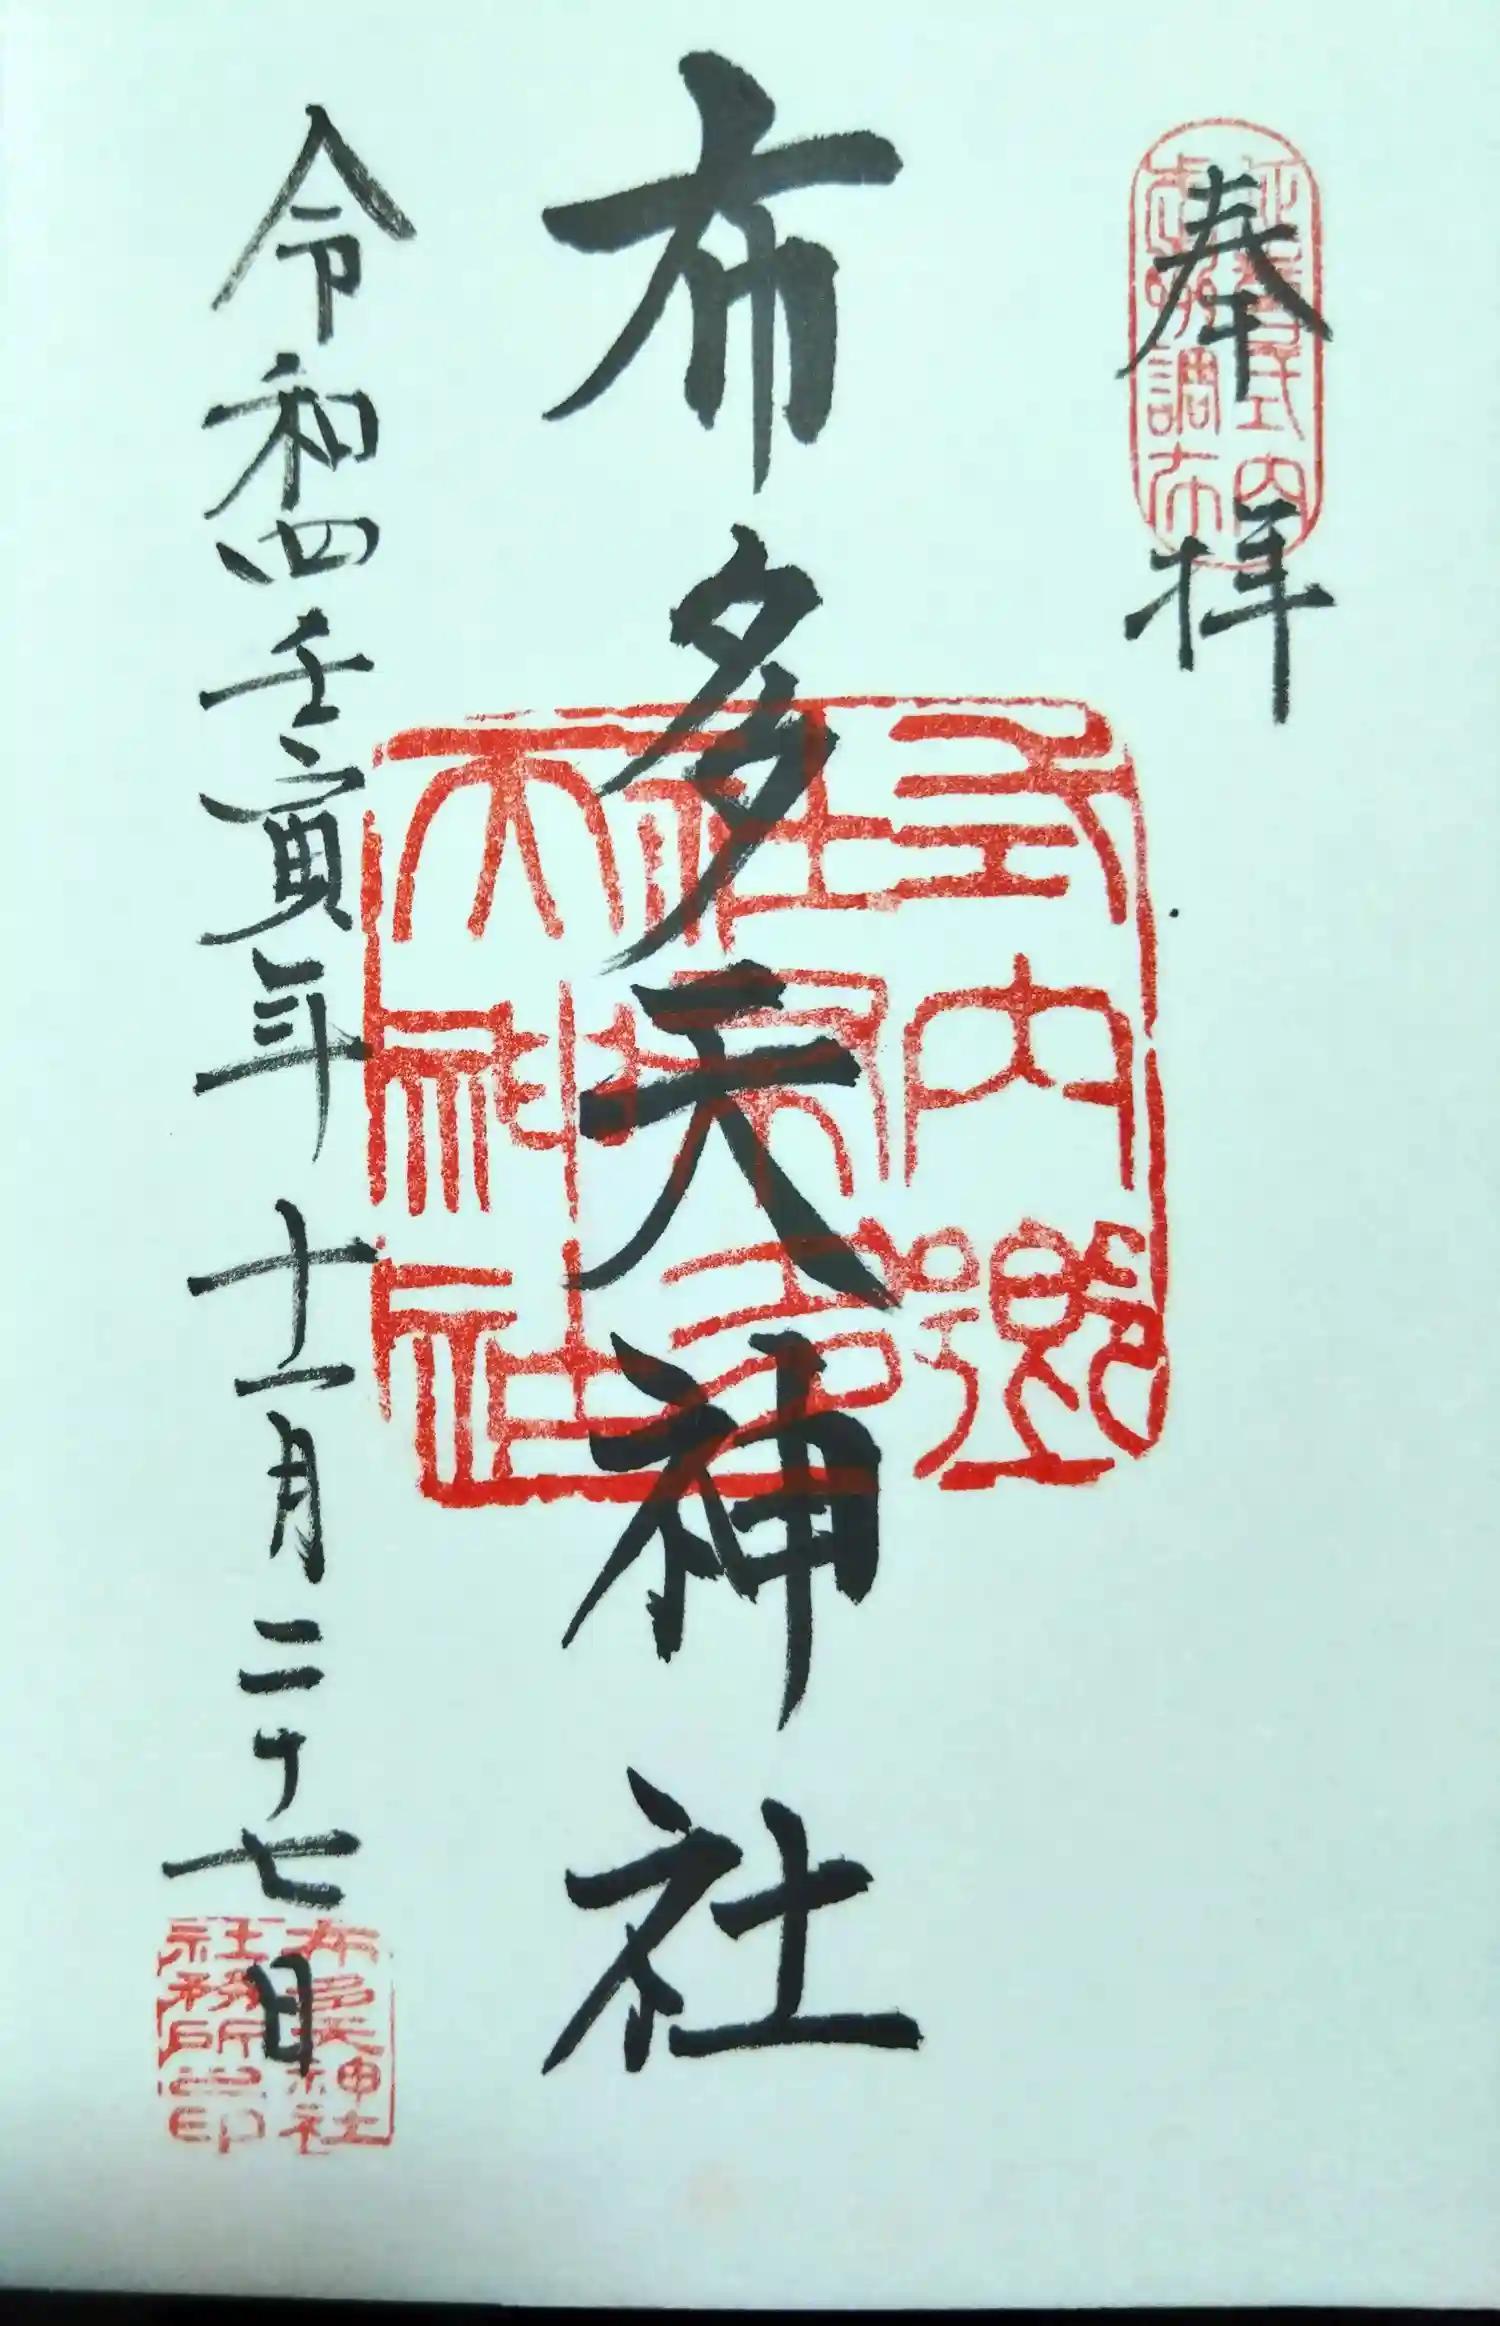 奉拝
延喜式内
武州調布
布多天神社
式内郷
天神社
令和四壬寅年十一月二十七日
布多天神社
社務所之印